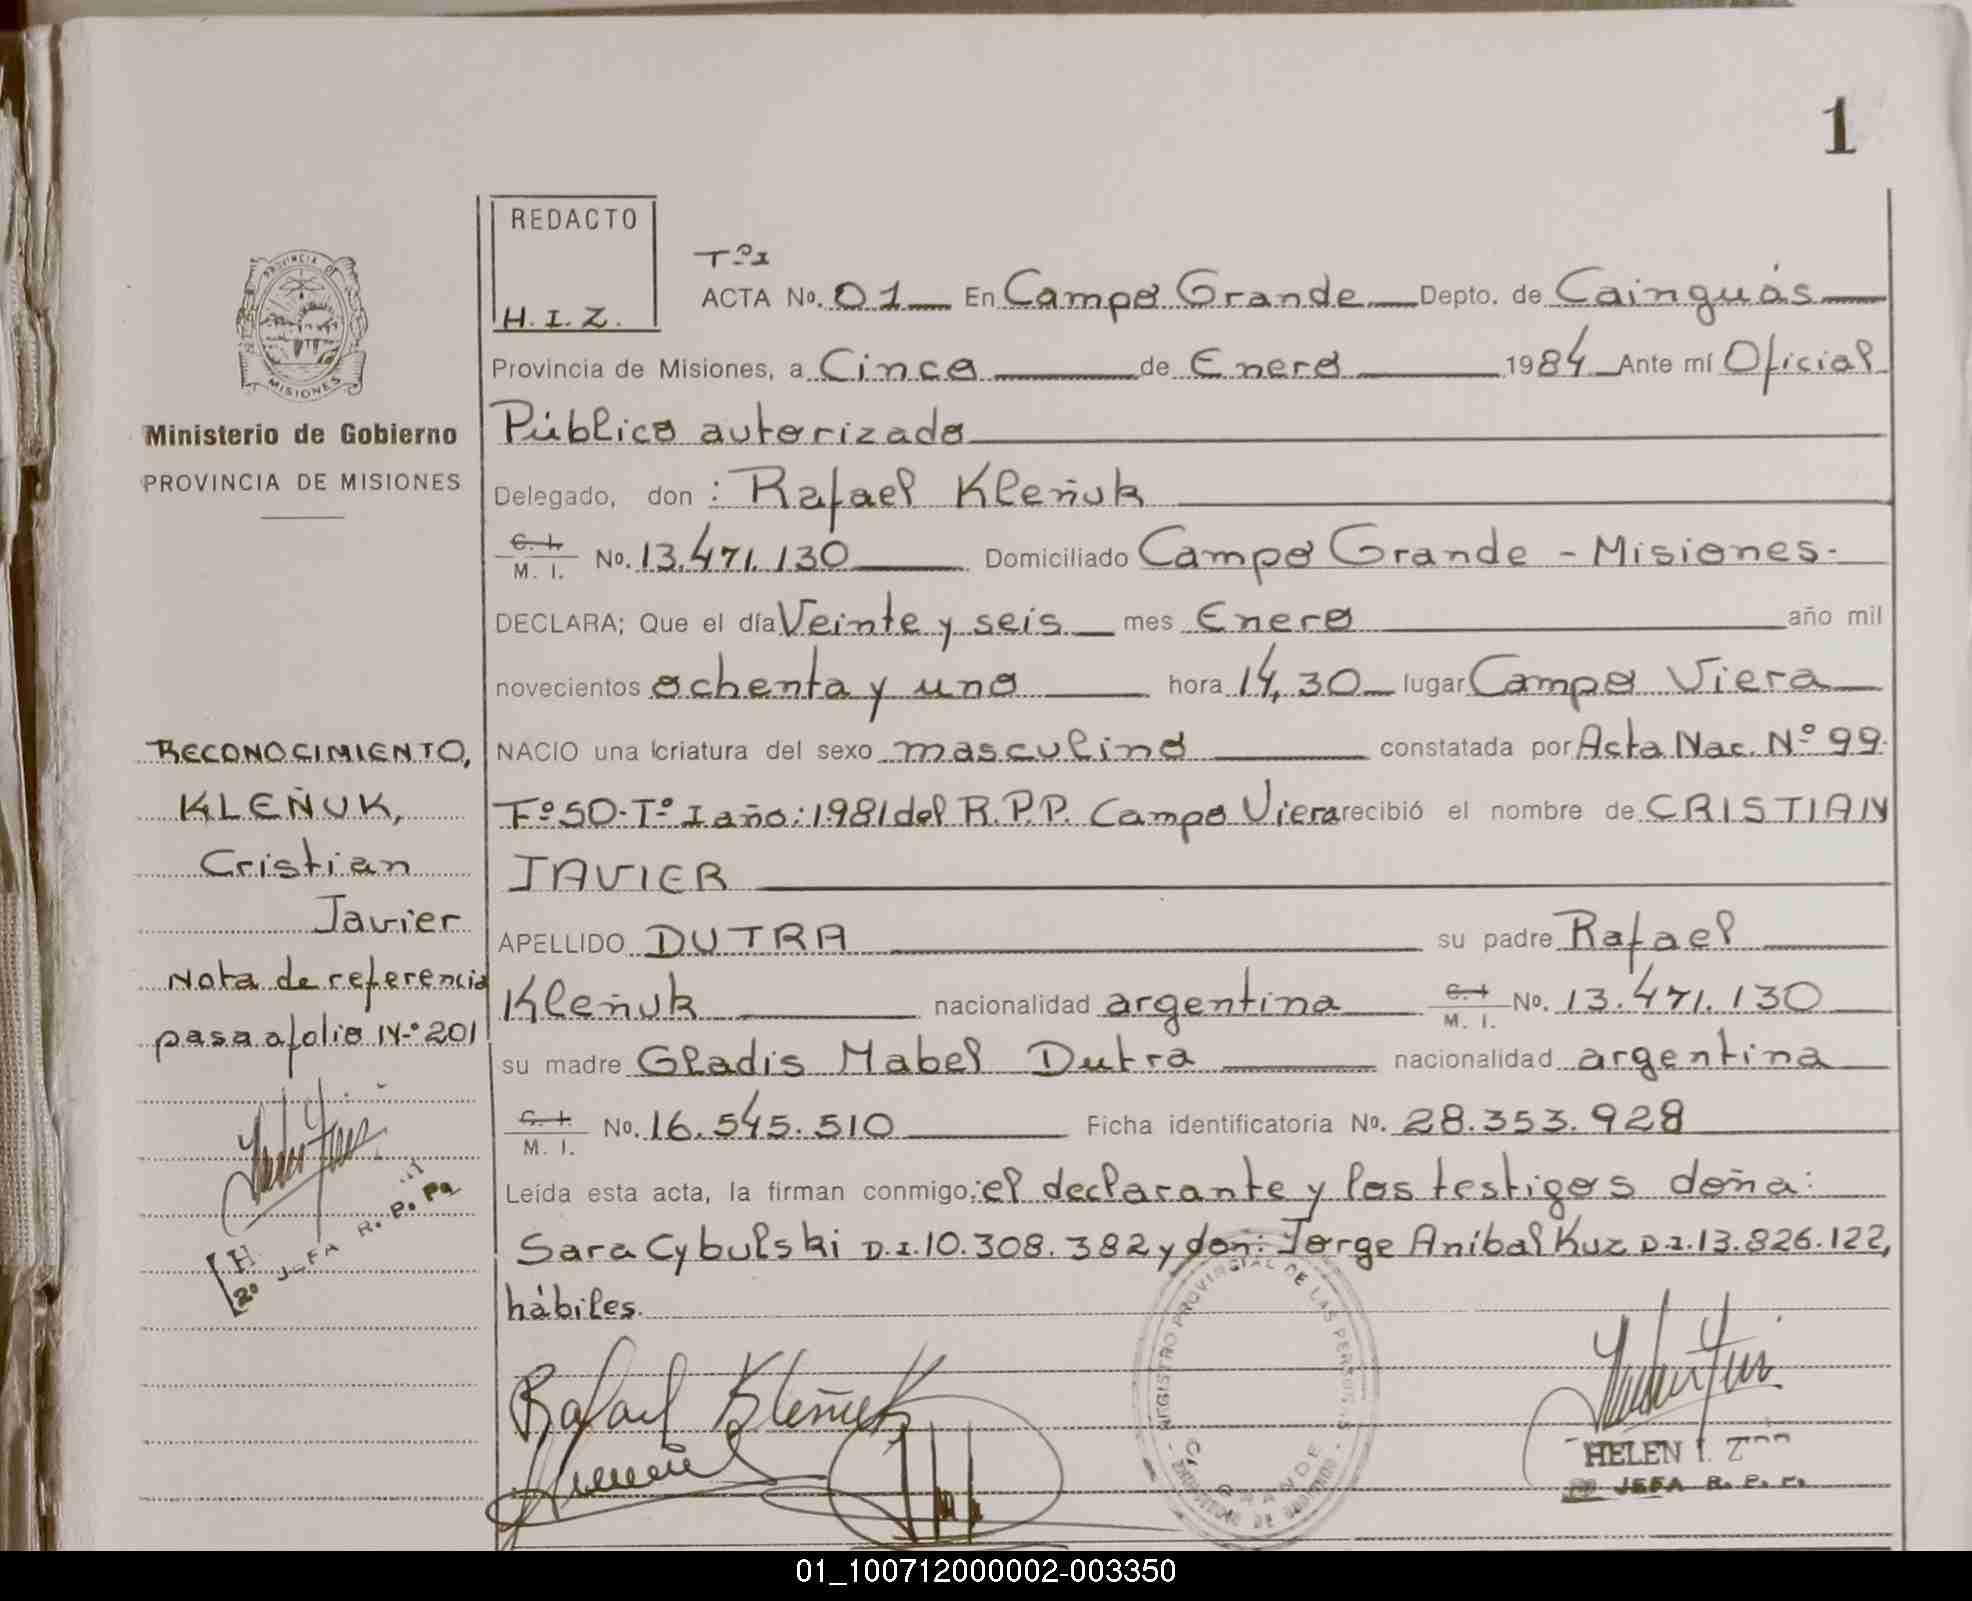 1
REDACTO
H. I. Z.
Tº 1
ACTA No. 01 En Campo Grande Depto. de Cainguás
Provincia de Misiones, a Cinco de Enero 1984 Ante mí Oficial
Público autorizado
Delegado, don : Rafael Kleñuk
C. I. M. I. No. 13.471.130 Domiciliado Campo Grande - Misiones.
DECLARA; Que el día Veinte y seis mes Enero año mil
novecientos ochenta y uno hora 14,30 lugar Campo Viera
NACIO una criatura del sexo masculino constatada por Acta Nac. Nº 99.
Fº 50-Tº I año: 1981 del R.P.P. Campo Viera recibió el nombre de CRISTIAN
JAVIER
APELLIDO DUTRA su padre Rafael
Kleñuk nacionalidad argentina C. I M. I. No. 13.471.130
su madre Gladis Mabel Dutra nacionalidad argentina
C. I. M. I. No. 16.545.510 Ficha identificatoria No. 28.353.928
Leída esta acta, la firman conmigo: el declarante y los testigos doña:
Sara Cybulski D.I. 10.308.382 y don: Jorge Aníbal Kuz D.I. 13.826.122,
hábiles.
Rafael Kleñuk
REGISTRO PROVINCIAL DE LAS PERSONAS
GRANDE
HELEN I.
JEFA R. P. P.
PROVINCIA DE
MISIONES
Ministerio de Gobierno
PROVINCIA DE MISIONES
RECONOCIMIENTO,
KLEÑUK,
Cristian
Javier
Nota de referencia
pasa a folio Nº 201
H
2º JEFA R. P. P.
01_100712000002-003350